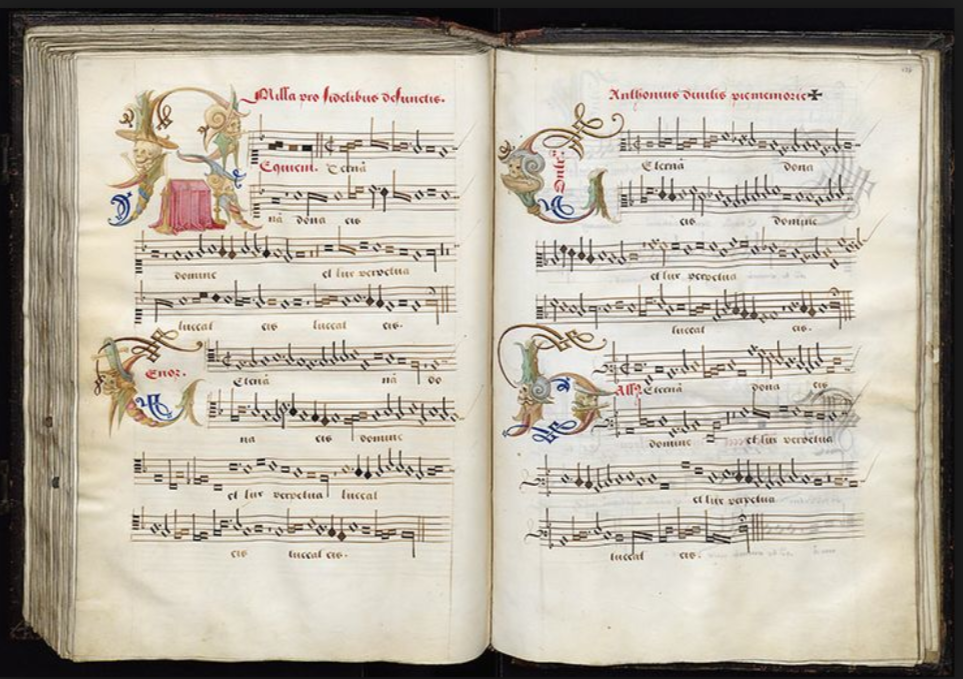 Missa pro fidelibus defunctis.
Equiem. Eternā
nā dona eis
domine et lux perpetua
luceat eis luceat eis.
Enor.
Eternā nā do
na eis domine
et lux perpetua luceat
eis luceat eis.
Anthonius divitis pie memorie
Eternā dona
eis domine
et lux perpetua
luceat eis.
Eternā dona eis
domine et lux perpetua
et lux perpetua
luceat eis.